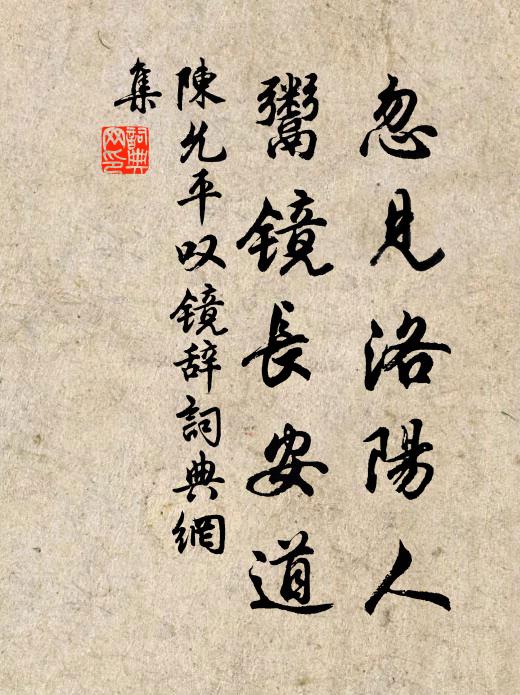 忽見洛陽人
鬻鏡長安道
陳允平叹鏡辞詞典網
集
詞典
网印